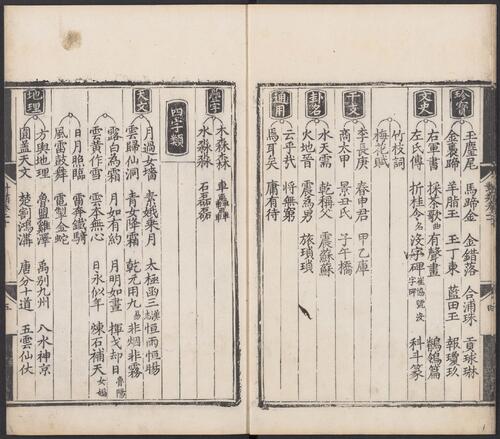 珍寶
玉麈尾 馬蹄金 金錯落 合浦珠 貢球琳
金裏蹄 羊脂玉 玉丁東 藍田玉 報瓊玖
文史
右軍書 採茶歌曲 有聲畫 鶺鴒篇
左氏傳 折桂令名 沒字碑崔協號沒字碑 科斗篆
竹枝詞
梅花賦
干支
李長庚 春申君 甲乙庫
商太甲 景丑氏 子午橋
卦名
水天需 乾稱父 震蘇蘇
火地晉 震爲男 旅瑣瑣
通用
云乎哉 將無窮
焉耳矣 庸有待
疊字
木森森 車轟轟
水淼淼 石磊磊
四字類
天文
月過女墻 素娥乘月 太極函三漢志 恒雨恒暘
雲歸仙洞 青女降霜 乾元用九易 非烟非霧
露白為霜 月如有約 月明如晝 揮戈却日魯陽
雲黃作雪 雲本無心 日永似年 煉石補天女媧
日月照臨 雷奔鐵騎
風雲鼓舞 電掣金蛇
地理
方輿地理 魯盟雞澤 禹别九州 八水神京
圓蓋天文 楚割鴻溝 唐分十道 五雲仙仗